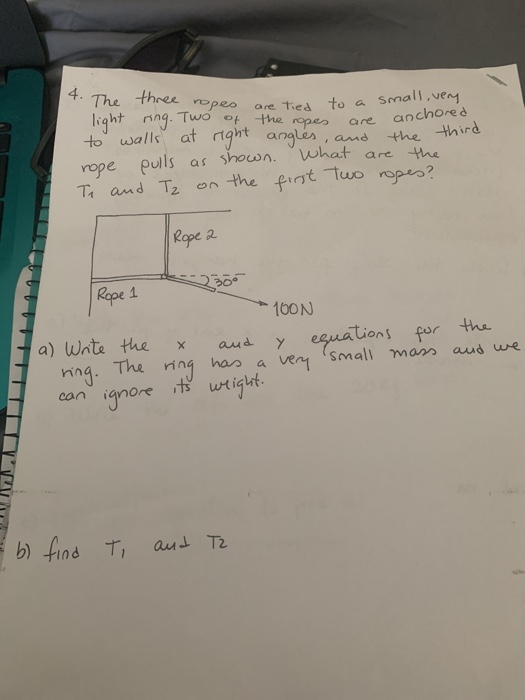 4. The three ropes are tied to a small, very
light ring. Two of the ropes are anchored
to walls at right angles, and the third
rope pulls as shown. What are the
T1 and T2 on the first two ropes?
Rope 2
30°
Rope 1
100N
a) Write the x and y equations for the
ring. The ring has a very small mass and we
can ignore its weight.
b) find T1 and T2